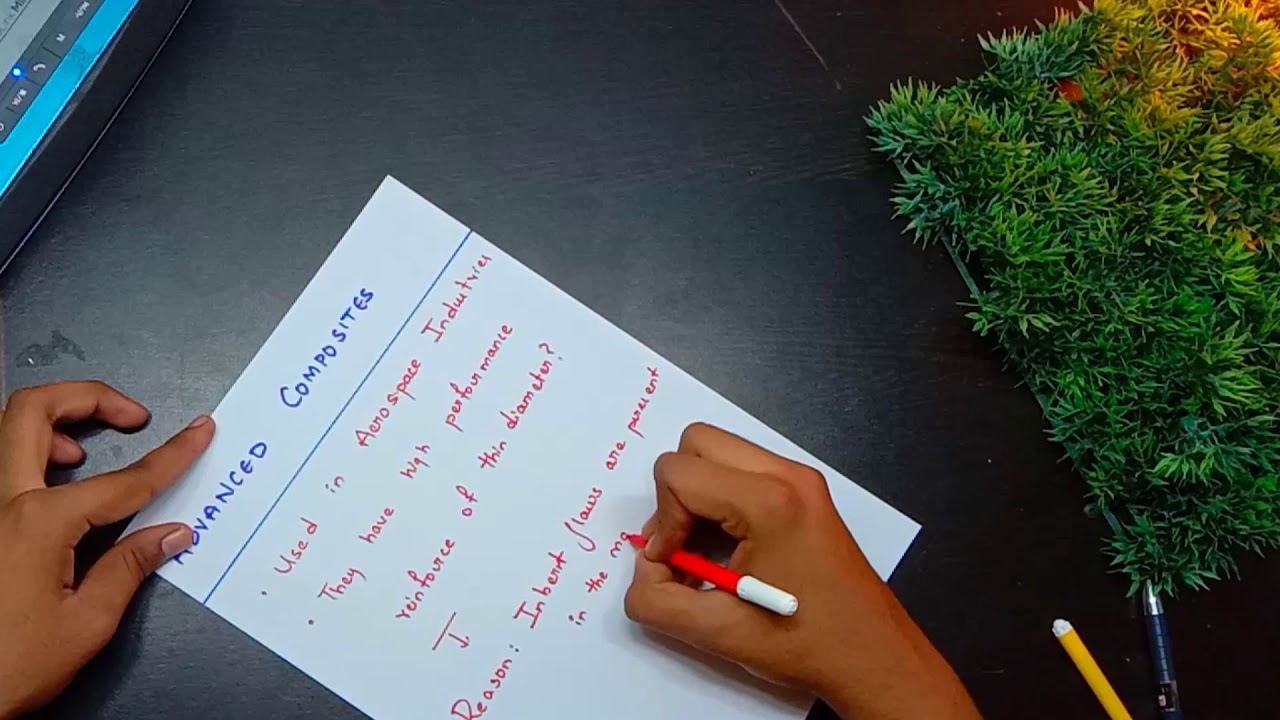 ADVANCED COMPOSITES
• Used in Aerospace Industries
• They have high performance
reinforce of thin diameter?
↓
Reason: Inhert flaws are present
in the ma